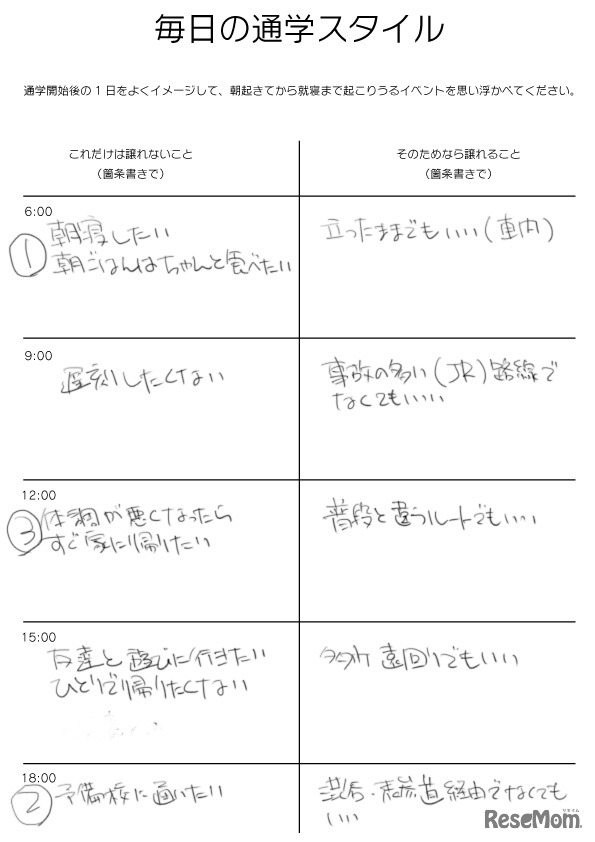 毎日の通学スタイル
通学開始後の1日をよくイメージして、朝起きてから就寝まで起こりうるイベントを思い浮かべてください。
これだけは譲れないこと
（箇条書きで）
そのためなら譲れること
（箇条書きで）
6:00
① 朝寝したい
朝ごはんはちゃんと食べたい
立ったままでもいい（車内）
9:00
遅刻したくない
事故の多い（JR）路線で
なくてもいい
12:00
③ 体調が悪くなったら
すぐ家に帰りたい
普段と違うルートでもいい
15:00
友達と遊びに行きたい
ひとりで帰りたくない
多少 遠回りでもいい
18:00
② 予備校に通いたい
渋谷・表参道経由でなくても
いい
リセマム
ReseMom.